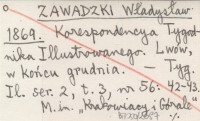 ZAWADZKI Władysław
1869. Korespondencya Tygod-
nika Illustrowanego. Lwów,
w końcu grudnia. — Tyg.
Il. ser. 2, t. 3, nr 56: 42-43.
M. in. „Krakowiacy i Górale"
%